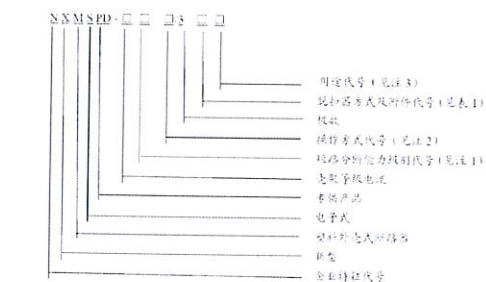 NXMSPD-□□ □-3 □□
用途代号(见注3)
脱扣器方式及附件代号(见表1)
极数
操作方式代号(见注2)
极限分断能力级别代号(见注1)
壳架等级电流
专供产品
电子式
塑料外壳式断路器
新型
企业特征代号